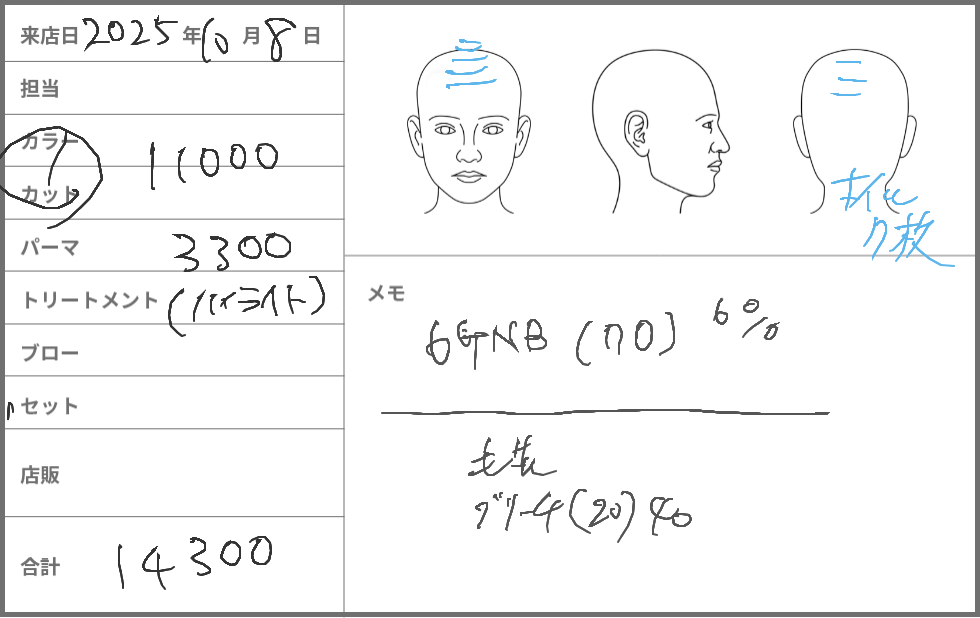 来店日 2025年10月8日
担当
カラー
カット
11000
パーマ 3300
トリートメント (ハイライト)
ブロー
セット
店販
合計 14300
ホイル
7枚
メモ
6GNB (70) 6%
毛先
ブリーチ(20) 40